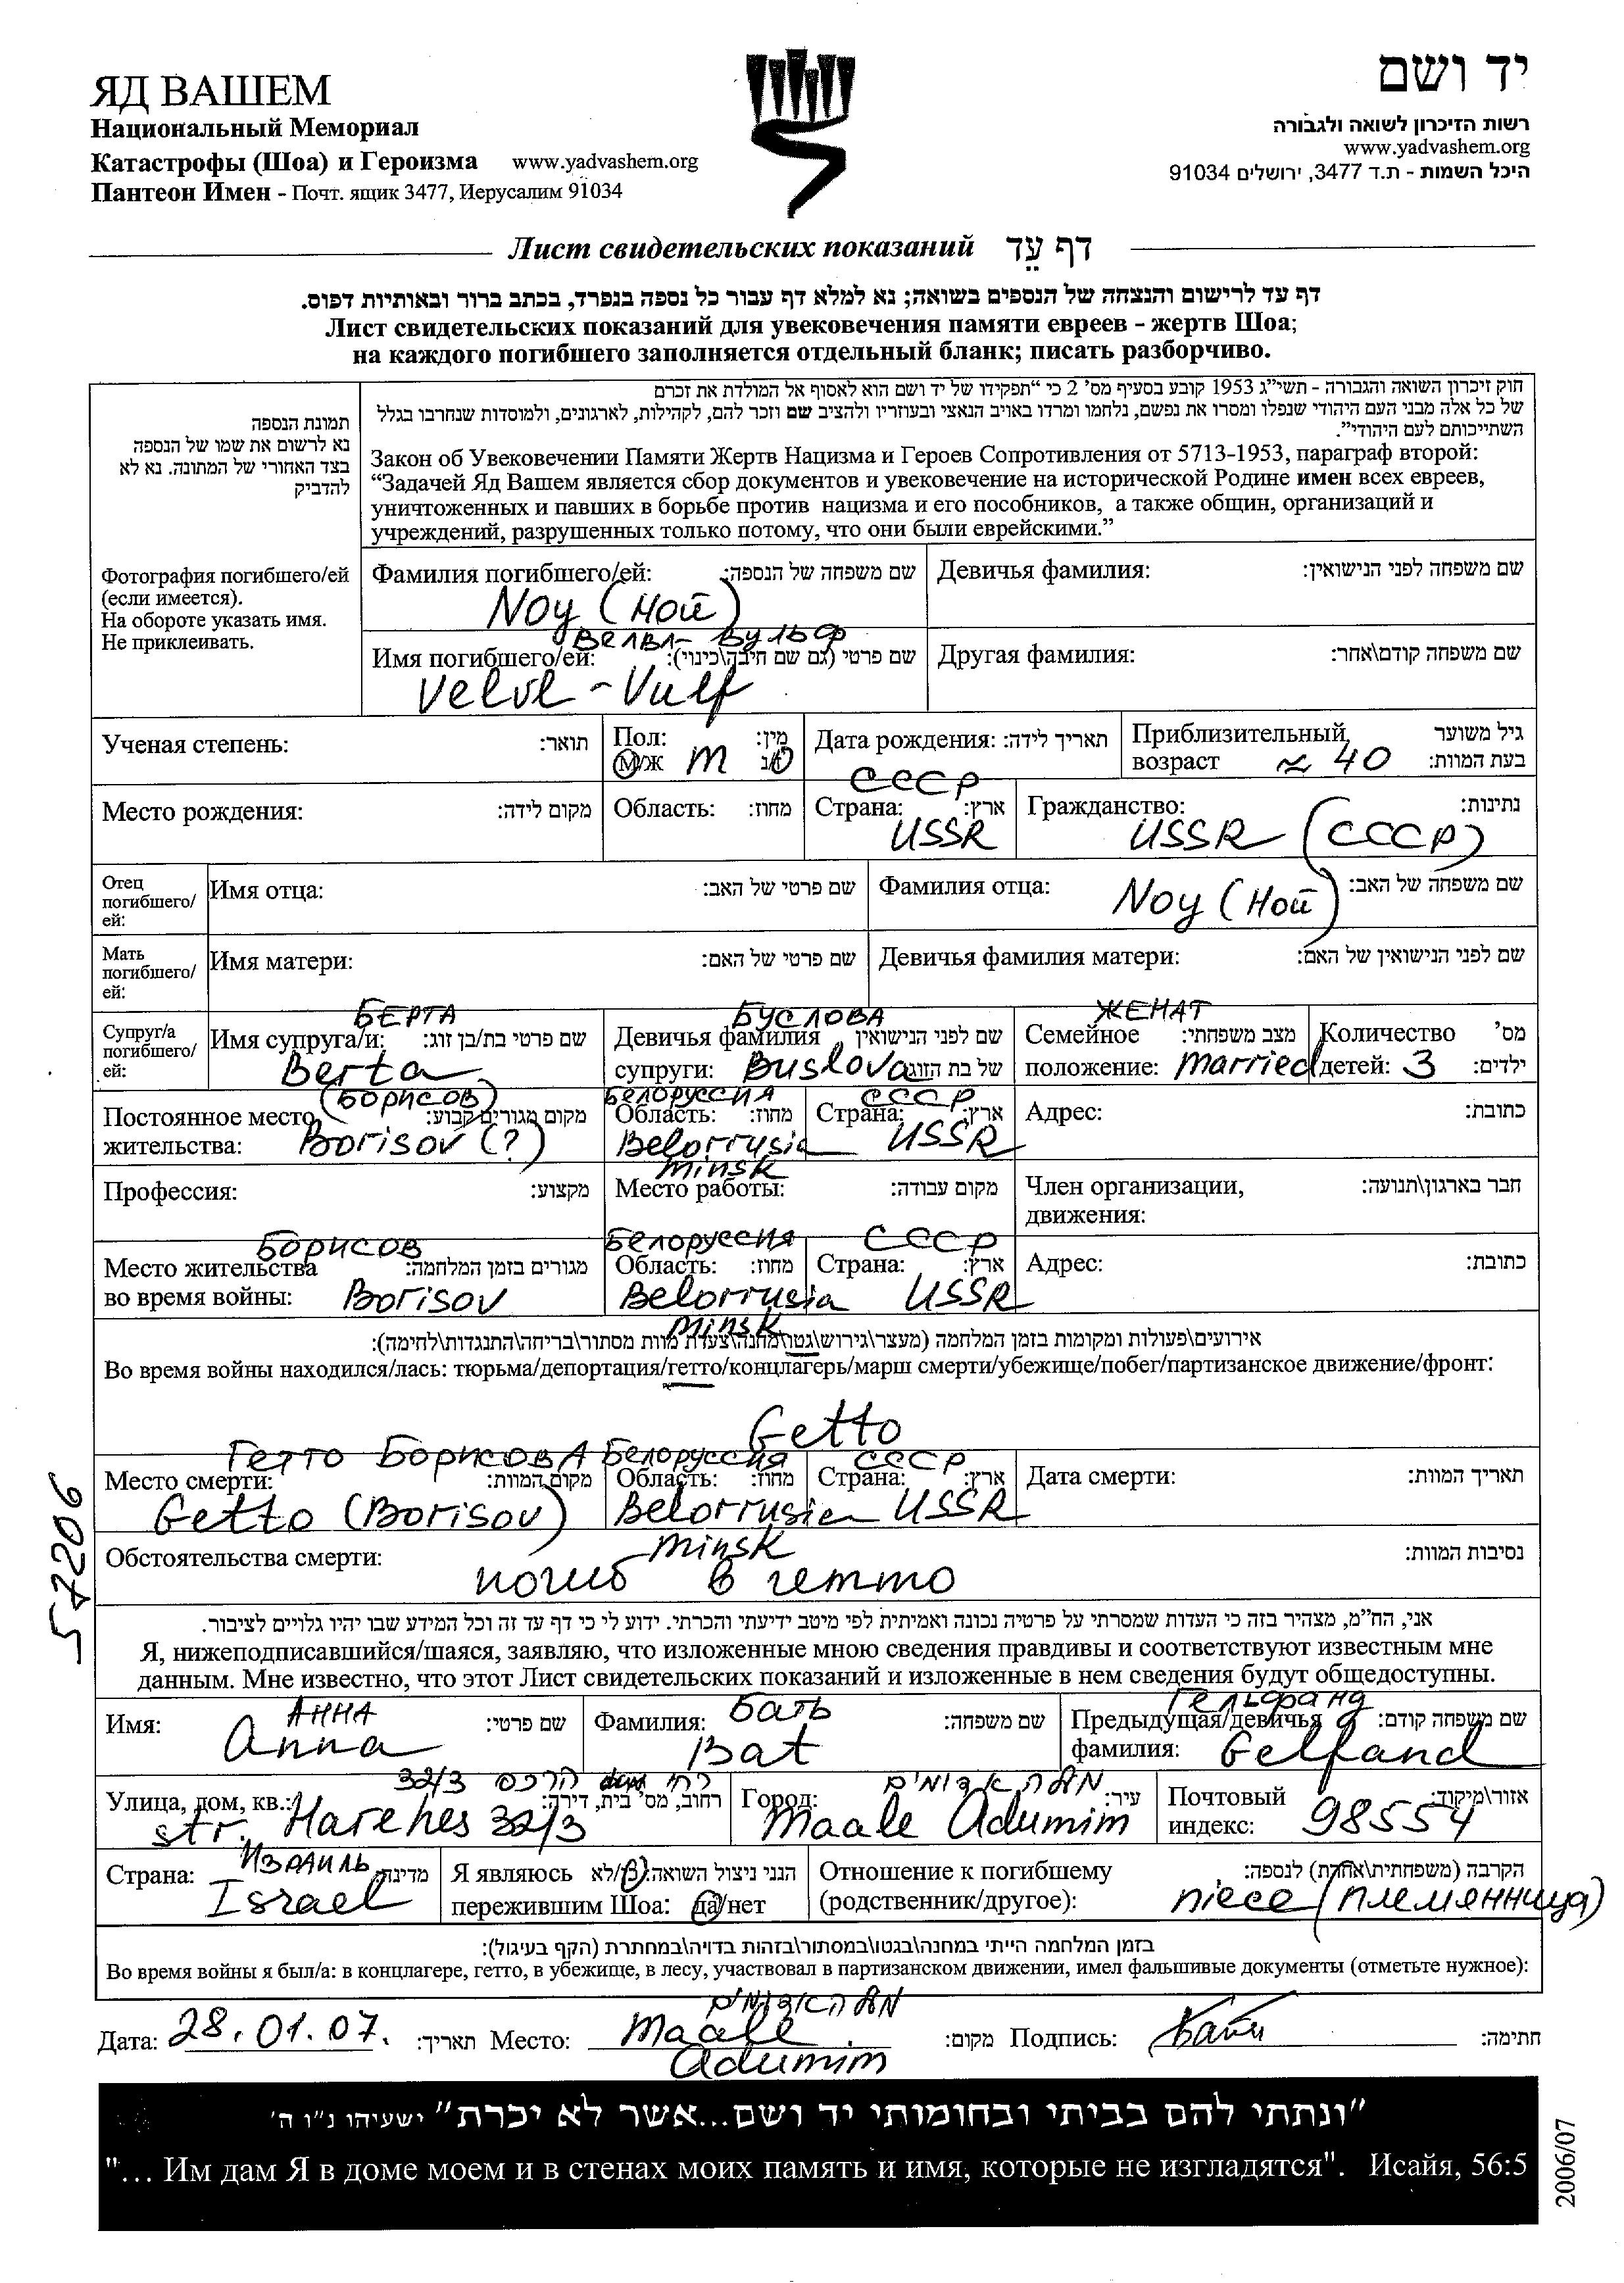 ЯД ВАШЕМ
Национальный Мемориал
Катастрофы (Шоа) и Героизма www.yadvashem.org
Пантеон Имен - Почт. ящик 3477, Иерусалим 91034
יד ושם
רשות הזיכרון לשואה ולגבורה
www.yadvashem.org
היכל השמות - ת.ד 3477, ירושלים 91034
Лист свидетельских показаний דף עֵד
דף עד לרישום והנצחה של הנספים בשואה; נא למלא דף עבור כל נספה בנפרד, בכתב ברור ובאותיות דפוס.
Лист свидетельских показаний для увековечения памяти евреев - жертв Шоа;
на каждого погибшего заполняется отдельный бланк; писать разборчиво.
תמונת הנספה
נא לרשום את שמו של הנספה
בצד האחורי של התמונה. נא לא
להדביק
Фотография погибшего/ей
(если имеется).
На обороте указать имя.
Не приклеивать.
חוק זיכרון השואה והגבורה - תשי"ג 1953 קובע בסעיף מס' 2 כי "תפקידו של יד ושם הוא לאסוף אל המולדת את זכרם
של כל אלה מבני העם היהודי שנפלו ומסרו את נפשם, נלחמו ומרדו באויב הנאצי ובעוזריו ולהציב שם וזכר להם, לקהילות, לארגונים, ולמוסדות שנחרבו בגלל
השתייכותם לעם היהודי".
Закон об Увековечении Памяти Жертв Нацизма и Героев Сопротивления от 5713-1953, параграф второй:
"Задачей Яд Вашем является сбор документов и увековечение на исторической Родине имен всех евреев,
уничтоженных и павших в борьбе против нацизма и его пособников, а также общин, организаций и
учреждений, разрушенных только потому, что они были еврейскими."
Фамилия погибшего/ей: שם משפחה של הנספה:
Noy (Ной)
Девичья фамилия: שם משפחה לפני הנישואין:
Велвл - Вульф
Имя погибшего/ей: שם פרטי (גם שם חיבה\כינוי):
Velvl - Vulf
Другая фамилия: שם משפחה קודם\אחר:
Ученая степень: תואר:
Пол: מין:
М/Ж m ז/נ
Дата рождения: תאריך לידה:
Приблизительный גיל משוער
возраст ≈ 40 בעת המוות:
Место рождения: מקום לידה:
Область: מחוז:
СССР
Страна: ארץ:
USSR
Гражданство: נתינות:
USSR (СССР)
Отец
погибшего/
ей:
Имя отца: שם פרטי של האב:
Фамилия отца: שם משפחה של האב:
Noy (Ной)
Мать
погибшего/
ей:
Имя матери: שם פרטי של האם:
Девичья фамилия матери: שם לפני הנישואין של האם:
Супруг/а
погибшего/
ей:
БЕРТА
Имя супруга/и: שם פרטי בת/בן זוג:
Berta
БУСЛОВА
Девичья фамилия שם לפני הנישואין
супруги: Buslova של בת הזוג:
ЖЕНАТ
Семейное מצב משפחתי:
положение: married
Количество מס'
детей: 3 ילדים:
(БОРИСОВ)
Постоянное место מקום מגורים קבוע:
жительства: Borisov (?)
Белоруссия
Область: מחוז:
Belorrusia
Minsk
СССР
Страна: ארץ:
USSR
Адрес: כתובת:
Профессия: מקצוע:
Место работы: מקום עבודה:
Член организации, חבר בארגון\תנועה:
движения:
БОРИСОВ
Место жительства מגורים בזמן המלחמה:
во время войны: Borisov
Белоруссия
Область: מחוז:
Belorrusia
Minsk
СССР
Страна: ארץ:
USSR
Адрес: כתובת:
אירועים\פעולות ומקומות בזמן המלחמה (מעצר\גירוש\גטו\מחנה\צעדת מוות מסתור\בריחה\התנגדות\לחימה):
Во время войны находился/лась: тюрьма/депортация/гетто/концлагерь/марш смерти/убежище/побег/партизанское движение/фронт:
Getto
Гетто Борисова
Место смерти: מקום המוות:
Getto (Borisov)
Белоруссия
Область: מחוז:
Belorrusia
Minsk
СССР
Страна: ארץ:
USSR
Дата смерти: תאריך המוות:
Обстоятельства смерти: נסיבות המוות:
погиб в гетто
אני, הח"מ, מצהיר בזה כי העדות שמסרתי על פרטיה נכונה ואמיתית לפי מיטב ידיעתי והכרתי. ידוע לי כי דף עד זה וכל המידע שבו יהיו גלויים לציבור.
Я, нижеподписавшийся/шаяся, заявляю, что изложенные мною сведения правдивы и соответствуют известным мне
данным. Мне известно, что этот Лист свидетельских показаний и изложенные в нем сведения будут общедоступны.
АННА
Имя: שם פרטי:
Anna
Бать
Фамилия: שם משפחה:
Bat
Гельфанд
Предыдущая/девичья שם משפחה קודם:
фамилия: Gelfand
רח' הרכס 32/3
Улица, дом, кв.: רחוב, מס' בית, דירה:
str. Harehes 32/3
מעלה אדומים
Город: עיר:
Maale Adumim
Почтовый אזור\מיקוד:
индекс: 98554
Израиль
Страна: מדינה:
Israel
Я являюсь הנני ניצול השואה: כן/לא
пережившим Шоа: да/нет
Отношение к погибшему הקרבה (משפחתית\אחרת) לנספה:
(родственник/другое): niece (племянница)
בזמן המלחמה הייתי במחנה\בגטו\במסתור\בזהות בדויה\במחתרת (הקף בעיגול):
Во время войны я был/а: в концлагере, гетто, в убежище, в лесу, участвовал в партизанском движении, имел фальшивые документы (отметьте нужное):
מעלה אדומים
Дата: 28.01.07. תאריך: Место: Maale Adumim מקום: Подпись: Бать חתימה:
"ונתתי להם בביתי ובחומותי יד ושם...אשר לא יכרת" ישעיהו נ"ו ה'
"... Им дам Я в доме моем и в стенах моих память и имя, которые не изгладятся". Исайя, 56:5
572206
2006/07